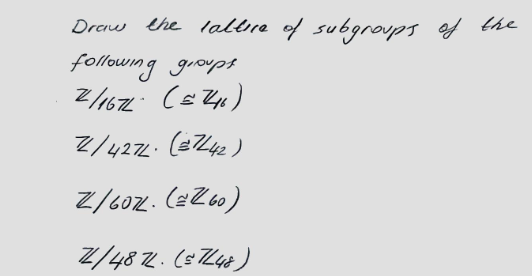 Draw the lattice of subgroups of the
following groups
ℤ/16ℤ. (≅ℤ₁₆)
ℤ/42ℤ. (≅ℤ₄₂)
ℤ/60ℤ. (≅ℤ₆₀)
ℤ/48ℤ. (≅ℤ₄₈)